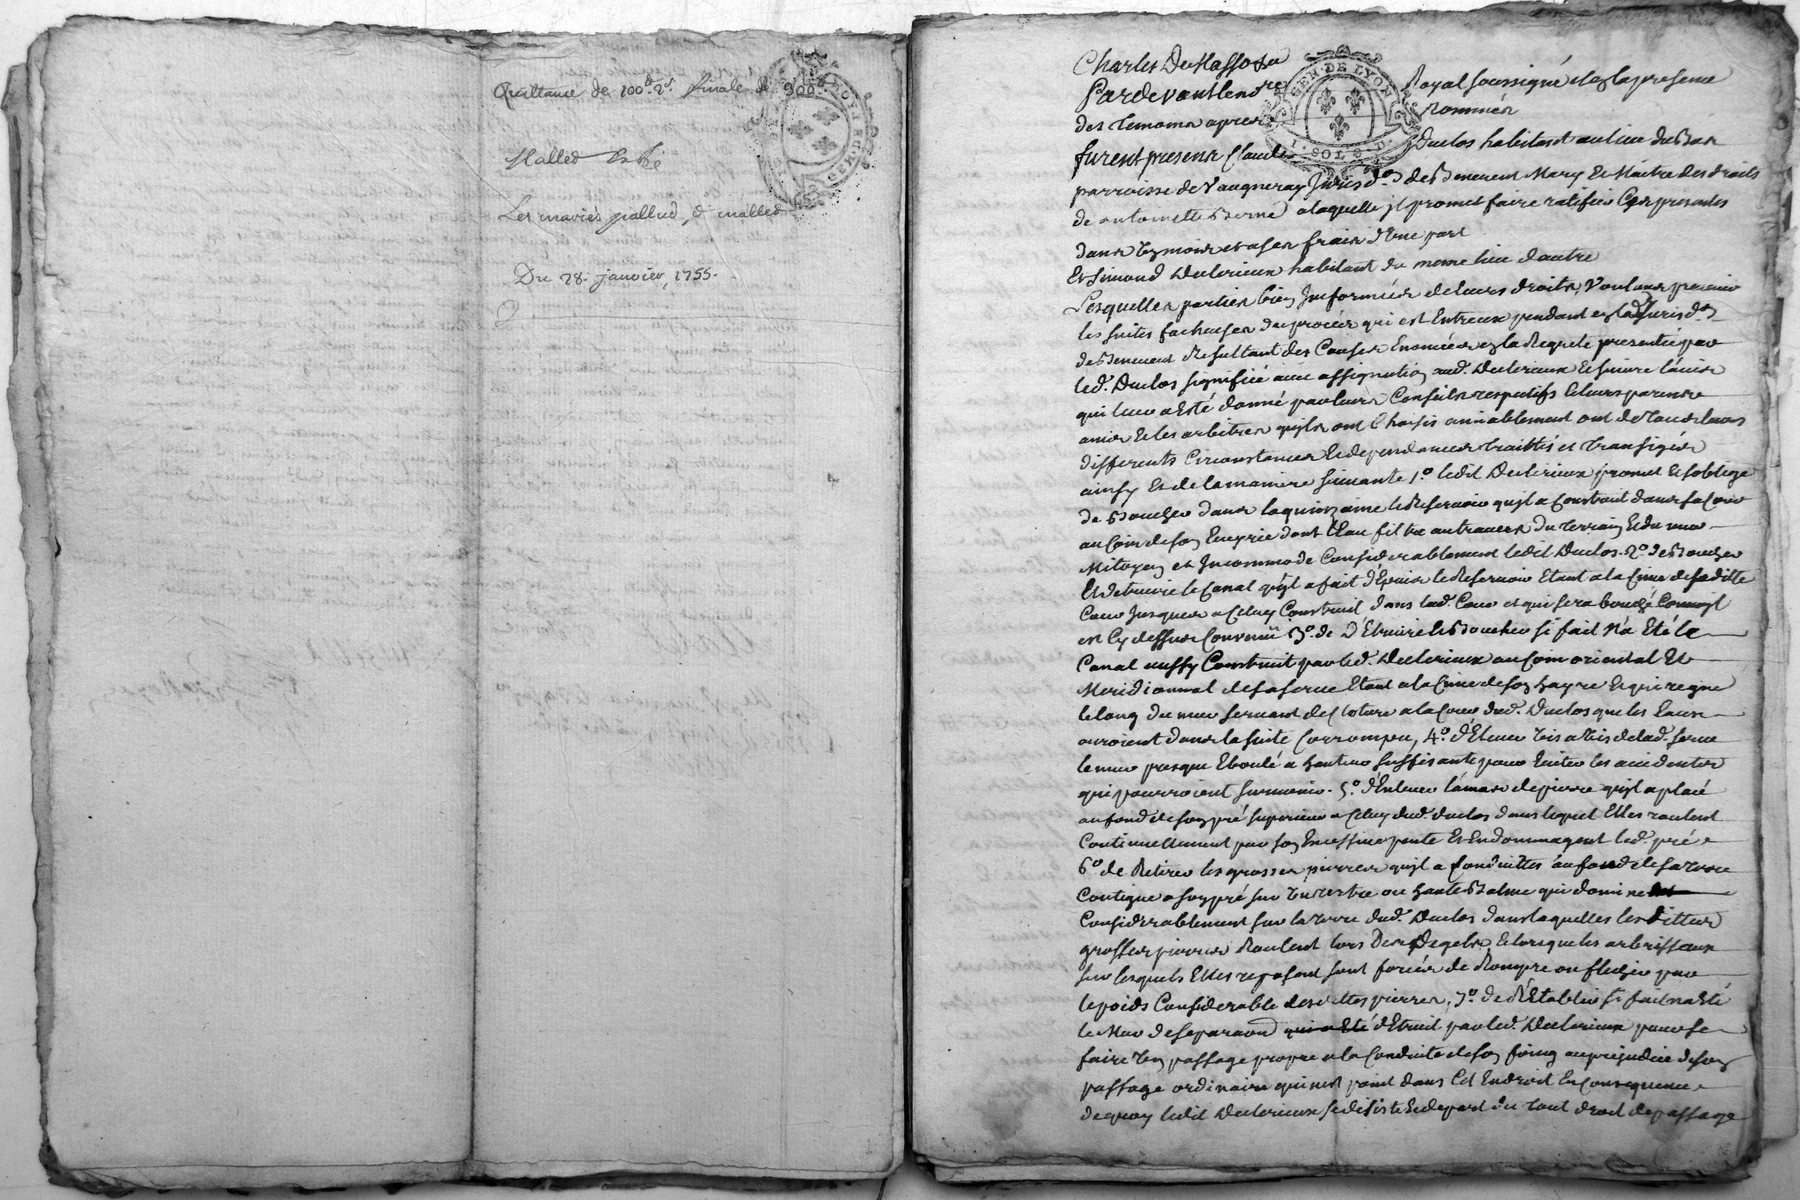 Quittance de 100lt 2s finale de 900lt
Malled
Les mariés pallud & malled
Du 28. janvier, 1755.
GEN. DE LYON
I. SOL 8. D.
Charles
Pardevant le nore Royal soussigné et en la presence
des temoins apres nommés
furent presents Claude Duclos habitant au lieu du
parroisse de Vaugneray Jurisdon de Benevent Mary et Maitre des droits
de antoinette Berne a laquelle jl promet faire ratifier Ces presentes
dans et a ses frais d'Une part
Et Simond Declerieux habitant du meme lieu d'autre
Lesquelles parties bien Jnformées de leurs droits, Voulant prevenir
les suites facheuses du procès qui est Entreux pendant en lad. Jurisdon
de Benevent Resultant des Causes Enoncées en la Requete presentée par
led. Duclos signifiée avec assignation aud. Declerieux Et suivre l'avis
qui leur a Esté donné par leurs Conseils respectifs et leurs parents
amis Et les arbitres qu'jls ont Choisis amiablement ont de tous leurs
differents Circonstances Et dependances traittés et transigés
ainsy Et de la maniere suivante 1o. ledit Declerieux promet Et s'oblige
de Boucher dans la quinzaine le Reservoir qu'jl a Construit dans sa Cour
au Coin de son dont l'Eau filtre au travers du terrain Et du mur
Mitoyen et Jncommode Considerablement ledit Duclos. 2o. de Boucher
Et detruire le Canal qu'jl a fait le Reservoir Etant a la Cime de sadite
Cour Jusques a Celuy Construit dans lad. Cour et qui sera bouché Comme jl
est Cy dessus Convenu 3o. de D'Etruire Et Boucher si fait N'a Eté le
Canal aussy Construit par led. Declerieux au Coin oriental Et
Meridionnal de sa serve Etant a la Cime de son Et qui regne
le long du mur servant de Cloture a la Cour dud. Duclos que les Eaux
auroient dans la suite Corrompu, 4o. d'Elever Vis a Vis de lad. serve
le mur presque Eboulé a hauteur suffisante pour Eviter les accidents
qui pourroient survenir. 5o. d'Enlever l'amas de pierre qu'jl a placé
au fond de son pré superieur a Celuy dud. duclos dans lequel Elles roulent
Continuellement par son Excessive pente Et Endommagent led. pré
6o. de Retirer les grosses pierres qu'jl a Conduittes au fond de sa terre
Contigue a son pré sur Un tertre ou haute Balme qui domine
Considerablement sur la terre dud. Duclos dans laquelles les dittes
grosses pierres Roulent lors Des Degels, Et lorsque les arbrisseaux
sur lesquels Elles reposent sont forcés de Rompre ou flechir par
le poids Considerable desdittes pierres, 7o. de R'Etablir si fait n'a Eté
le Mur de separaon d'Etruit par led. Declerieux pour se
faire Un passage propre a la Conduite de son foing au prejudice de son
passage ordinaire qui n'est point dans Cet Endroit En Consequence
de quoy ledit Declerieux se desiste Et depart du tout droit de passage